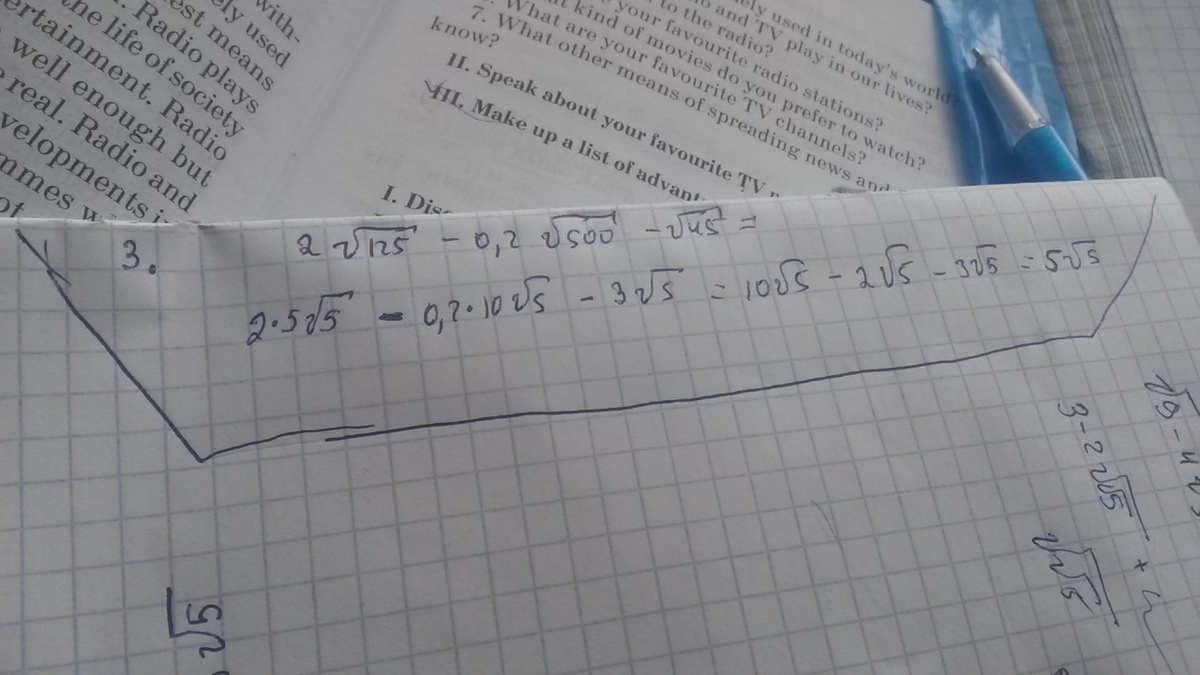 with-
ely used
est means
. Radio plays
the life of society
ertainment. Radio
well enough but
real. Radio and
velopments
mmes
ely used in today's world?
io and TV play in our lives?
to the radio?
your favourite radio stations?
at kind of movies do you prefer to watch?
What are your favourite TV channels?
7. What other means of spreading news and
know?
II. Speak about your favourite TV
III. Make up a list of advant
I. Disc
3.
2√125 - 0,2 √500 - √45 =
2·5√5 - 0,2·10√5 - 3√5 = 10√5 - 2√5 - 3√5 = 5√5
√5
3-2√5 +
√√5